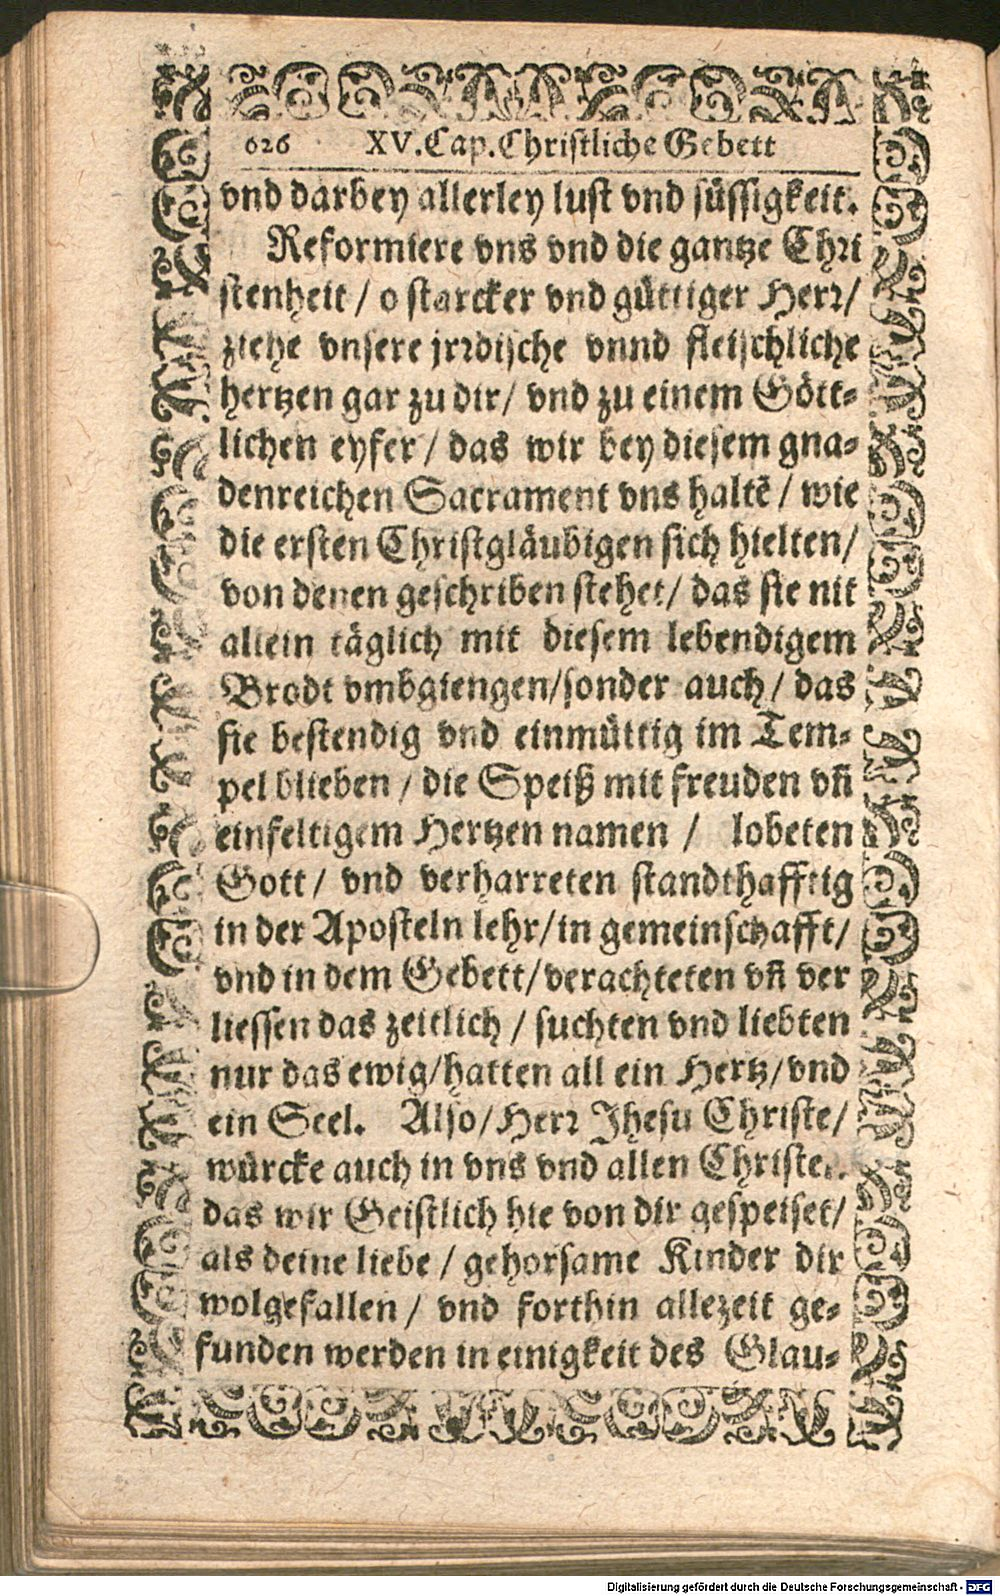 626 XV. Cap. Christliche Gebett
vnd darbey allerley lust vnd süssigkeit.
Reformiere vns vnd die gantze Chri
stenheit / o starcker vnd gütiger Herr/
ziehe vnsere jrrdische vnnd fleischliche
hertzen gar zu dir/ vnd zu einem Gött-
lichen eyfer / das wir bey diesem gna-
denreichen Sacrament vns haltē / wie
die ersten Christgläubigen sich hielten/
von denen geschriben stehet/ das sie nit
allein täglich mit diesem lebendigem
Brodt vmbgiengen/sonder auch / das
sie bestendig vnd einmüttig im Tem-
pel blieben / die Speiß mit freuden vñ
einfeltigem Hertzen namen / lobeten
Gott / vnd verharreten standthafftig
in der Aposteln lehr/in gemeinschafft/
vnd in dem Gebett/verachteten vñ ver
liessen das zeitlich / suchten vnd liebten
nur das ewig/hatten all ein Hertz/vnd
ein Seel. Also/Herr Jhesu Christe/
würcke auch in vns vnd allen Christen.
das wir Geistlich hie von dir gespeiset/
als deine liebe / gehorsame Kinder dir
wolgefallen / vnd forthin allezeit ge-
funden werden in einigkeit des Glau-
Digitalisierung gefördert durch die Deutsche Forschungsgemeinschaft - DFG